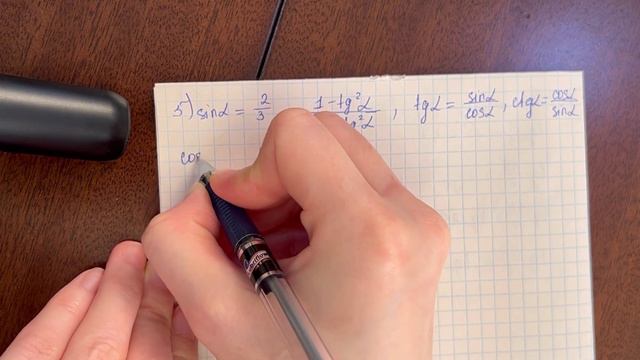 5) sinα = 2/3 1 - tg²α , tgα = sinα/cosα , ctgα = cosα/sinα
cos